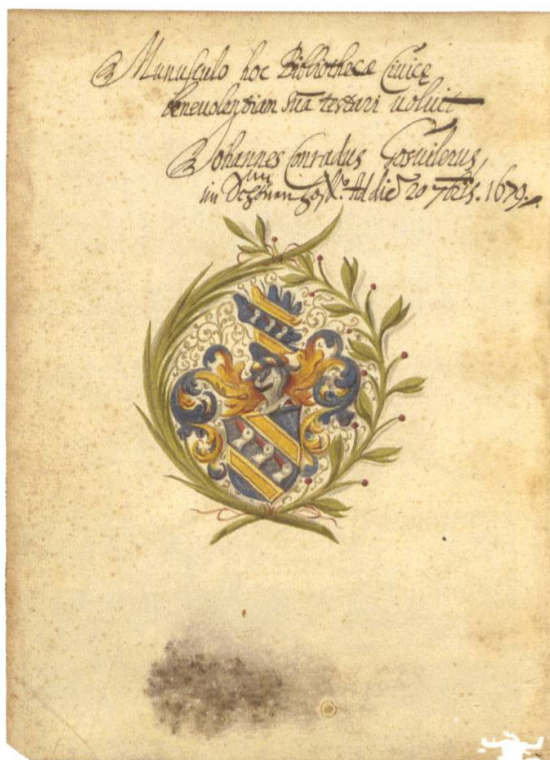 Munusculo hoc Bibliothecę Ciuicę
beneuolentiam suā testari uoluit
Johannes Conradus Gosuilerus,
im Ad diē 20 7bris. 1679.